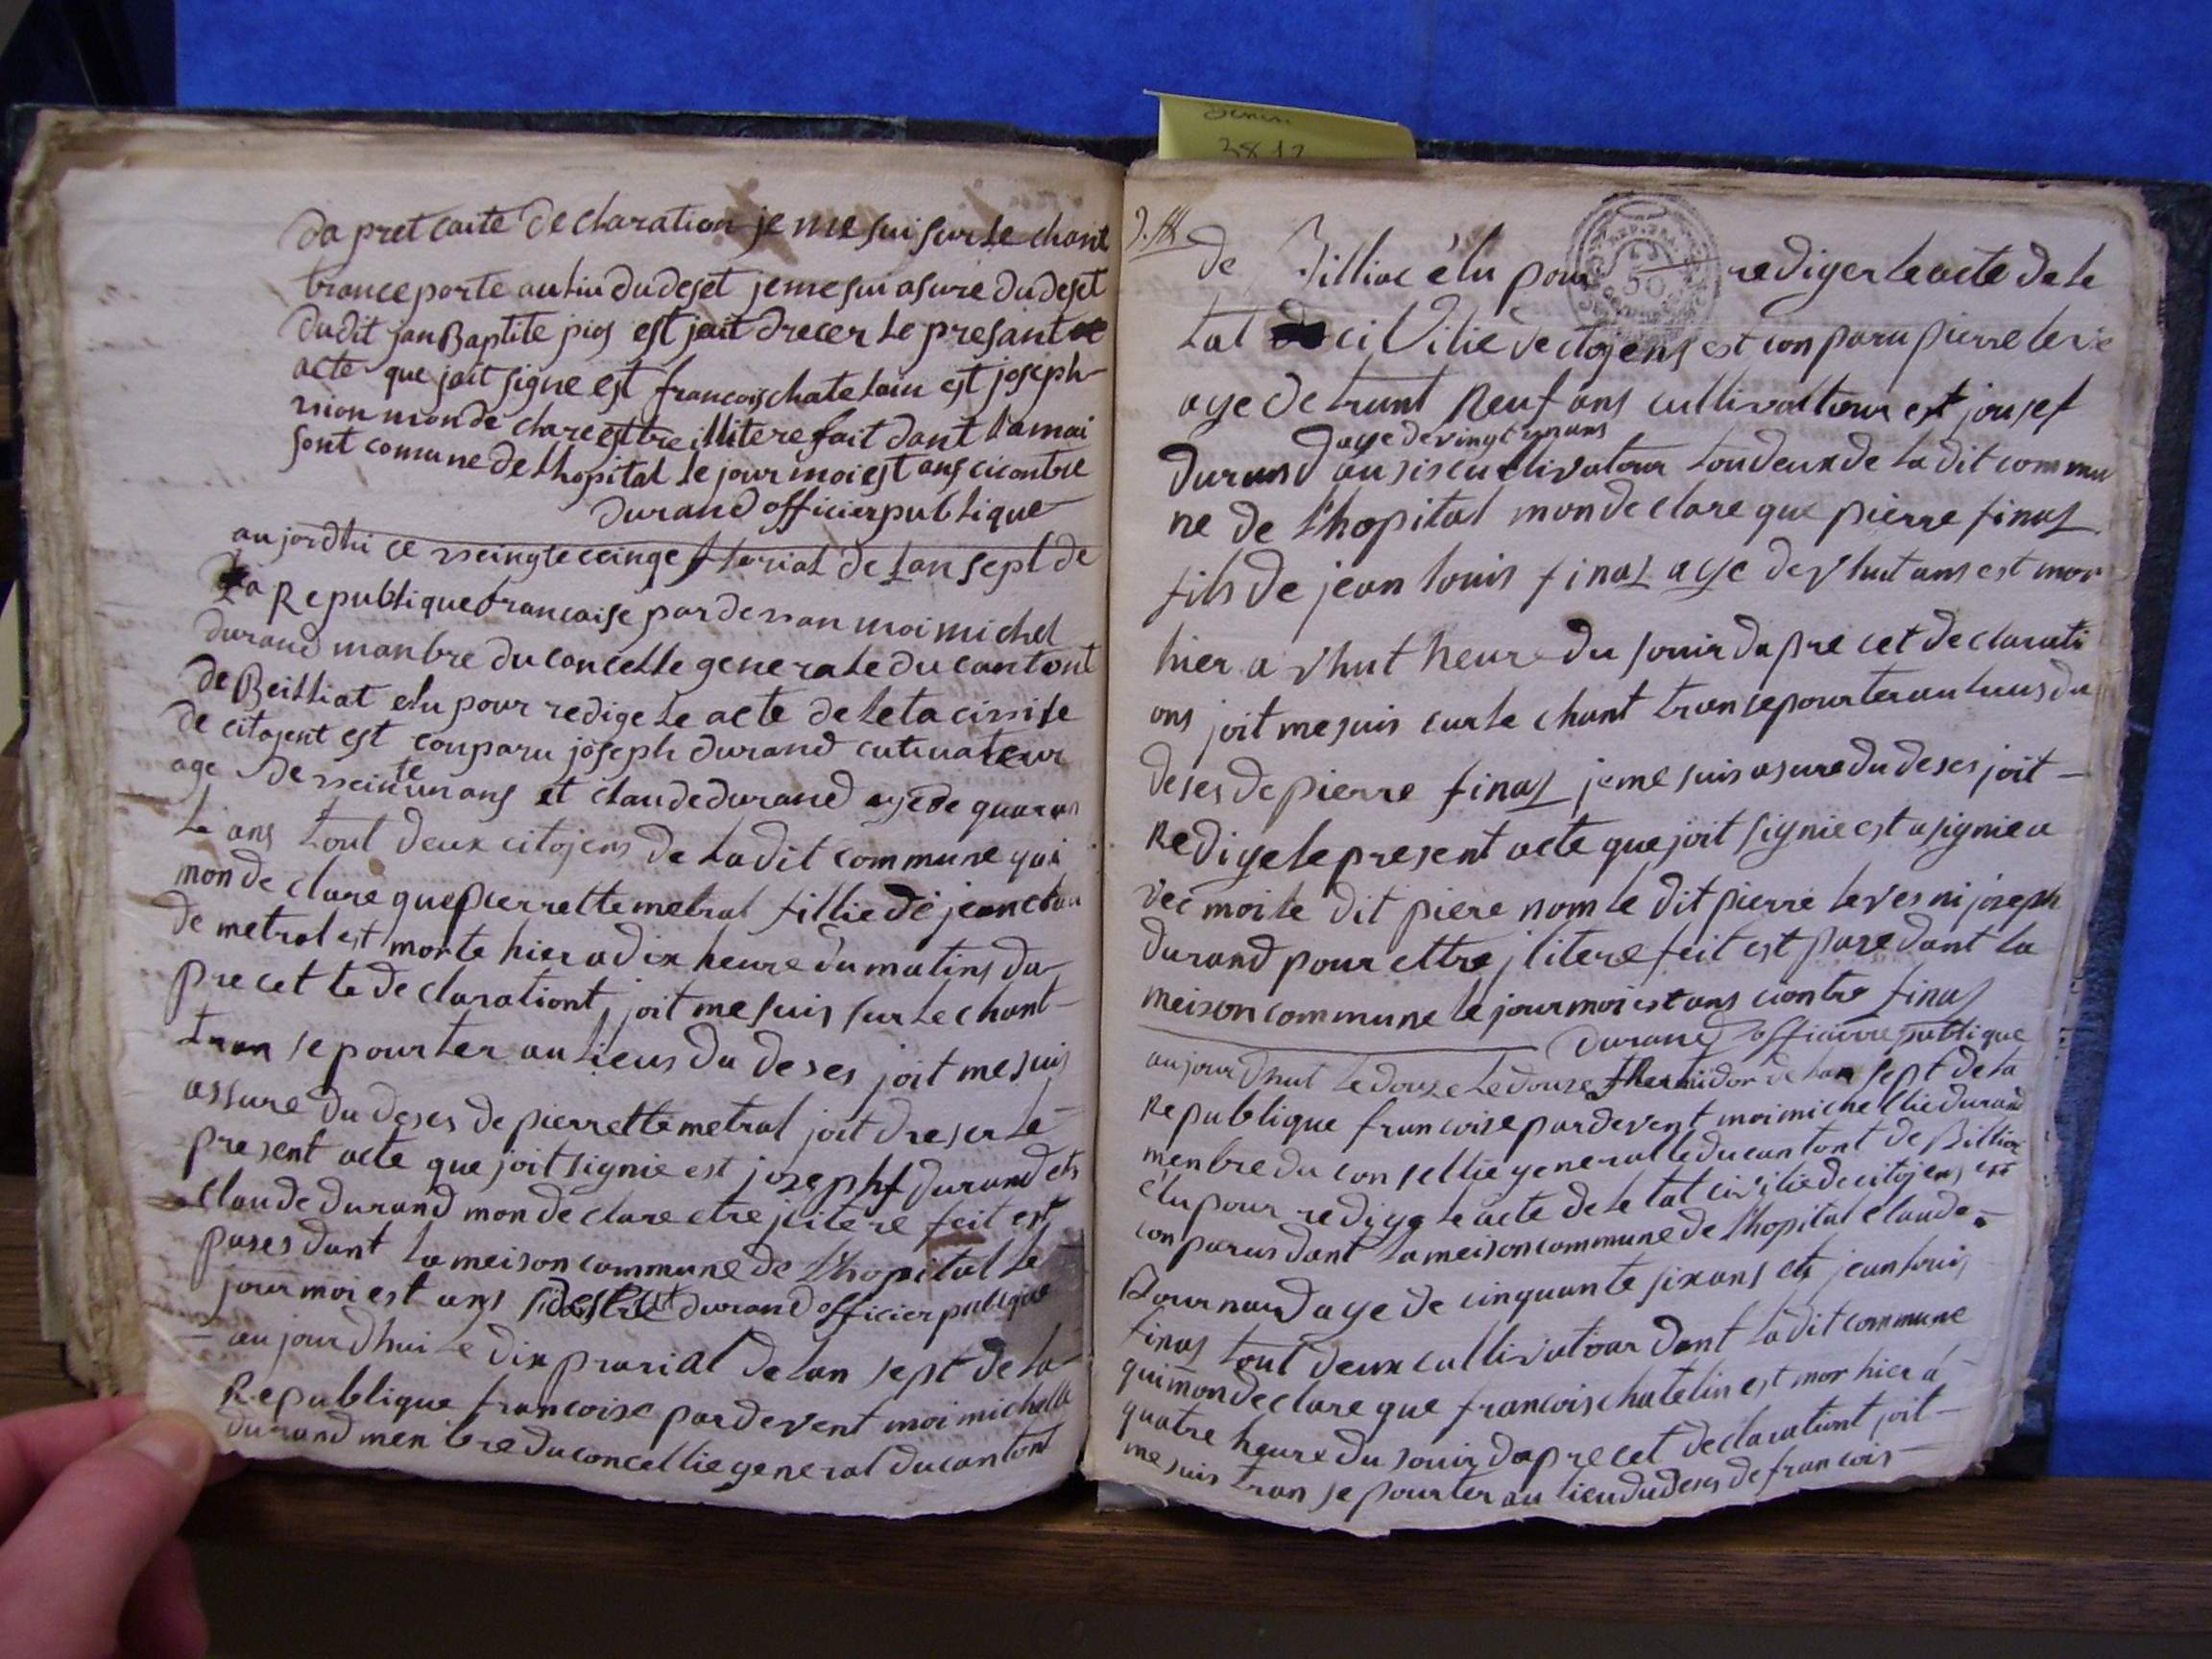 da pret caite declaration je me sui sur le chant
trance porte au liu du deset je me sui asure du deset
dudit jan Baptite pios est jait drecer le presant
acte que jait signe est francois chatelain est joseph
mion mon de clare estre illitere fait dant la mai
sont comune de lhopital le jour moi est ans ci contre
durand officier publique
aujordhi ce veingte ceinqe florial de lan sept de
la Republique francaise par devan moi michel
durand manbre du concelle generale du cantont
de Beilliat elu pour redige le acte de leta civile
de citojent est conparu joseph durand cutivateur
age de veinte un ans et claude durand age de quaran
te ans tout deux citojens de la dit commune qui
mon de clare que pierrette metral fillie de jean clau
de metral est morte hier a dix heure du matins da
pre cet te de clarationt joit me suis sur le chant
tran se pourter au lieus du deses joit me suis
assure du deses de pierrette metral joit dreser le
present acte que joit signie est joseph durand ets
claude durand mon de clare etre jlitere feit est
pases dant la meison commune de lhopital le
jour moi est ans durand officier publique
aujourdhui le dix prarial de lan sept de la
Republique francoise par devent moi michelle
durand menbre du concellie general du cantont
Denin
3812
de Billiac élu pour rediger le acte de le
REP. FRA.
50
tat ci Vilie de ctojens est con paru pierre leve
age de trant neuf ans cultivatour est jousef
age de vingt un ans
durand ausis cultivatour tou deux de la dit commu
ne de lhopital mon de clare que pierre finas
fils de jean louis finas age de vhut ans est mor
hier a vhut heure du souir dapre cet declarati
ons joit me suis cur le chant tran se pourter au luus du
deses de pierre finas je me suis asure du deses joit
Redige le present acte que joit signie est a signie a
vec moi le dit piere nom le dit pierre leves ni joseph
durand pour ettre jlitere feit est pase dant la
meison commune le jour moi est ans ciontre finas
durand officierre publique
aujourdhut le douse le douse thermidor de lan sept de la
Republique francoise par devent moi michellie durand
menbre du consellie generalle du cantont de Billiac
élu pour redige le acte de le tat civilie de citojens est
con parus dant la meison commune de lhopital claude
Bournaud age de cinquante six ans ets jean louis
finas tout deux cultivatour dant la dit commune
qui mon declare que francois chatelin est mor hier á
quatre heure du souir dapre cet declarationt joit
me suis tran se pourter au lieu du deses de francois